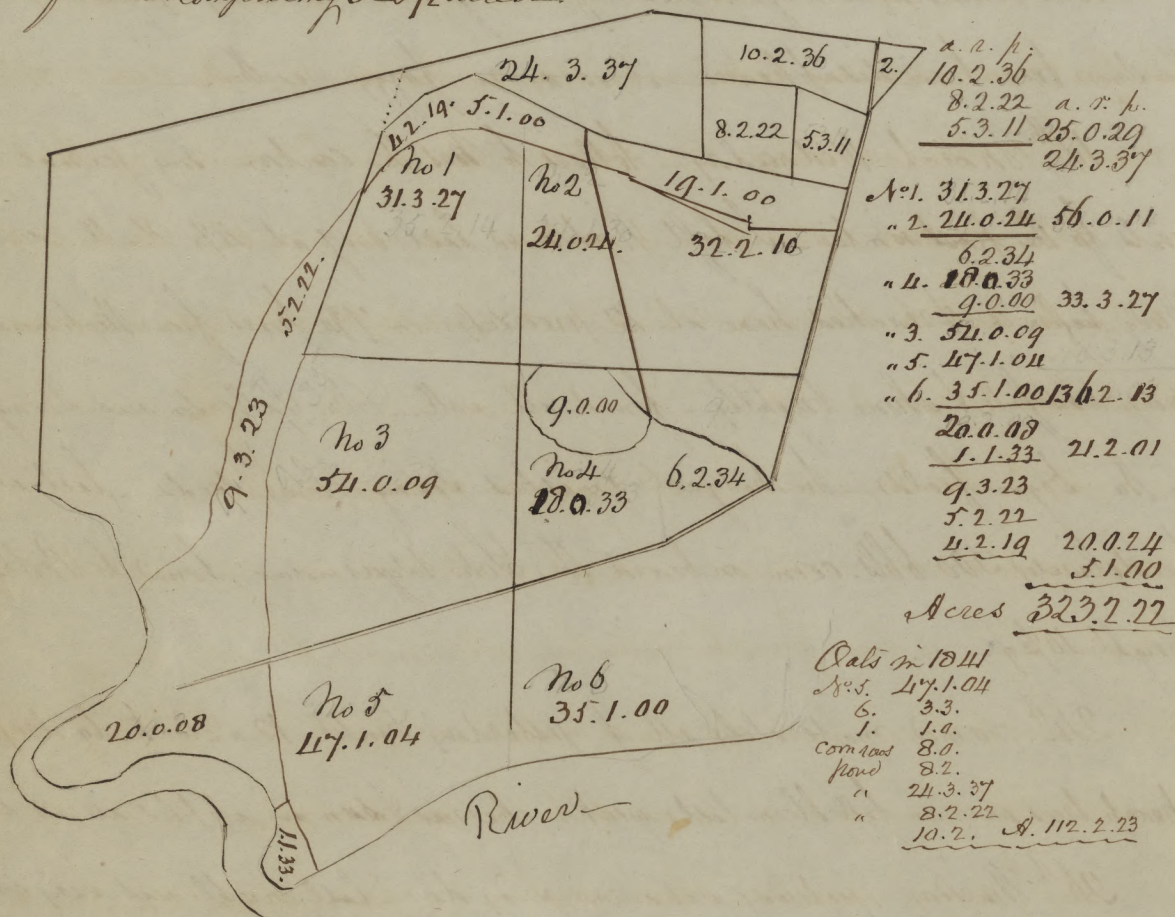 24. 3. 37
10. 2. 36
2.
8.2.22
5.3.11
4.2.19.
5.1.00
No 1
31.3.27
No 2
24.0.24.
19.1.00
32.2.10
5.2.22.
9.3.23
No 3
54.0.09
9.0.00
No 4
18.0.33
6.2.34
20.0.08
No 5
47.1.04
No 6
35.1.00
1.1.33.
River
a. r. p.
10.2.36
8.2.22 a. r. p.
5.3.11 25.0.29
24.3.37
No 1. 31.3.27
" 2. 24.0.24 56.0.11
6.2.34
" 4. 18.0.33
9.0.00 33.3.27
" 3. 54.0.09
" 5. 47.1.04
" 6. 35.1.00 136.2.13
20.0.08
1.1.33 21.2.01
9.3.23
5.2.22
4.2.19 20.0.24
5.1.00
Acres 323.2.22
Oats in 1841
No 5. 47.1.04
6. 3.3.
1. 1.0.
8.0.
8.2.
" 24.3.37
" 8.2.22
10.2. A. 112.2.23